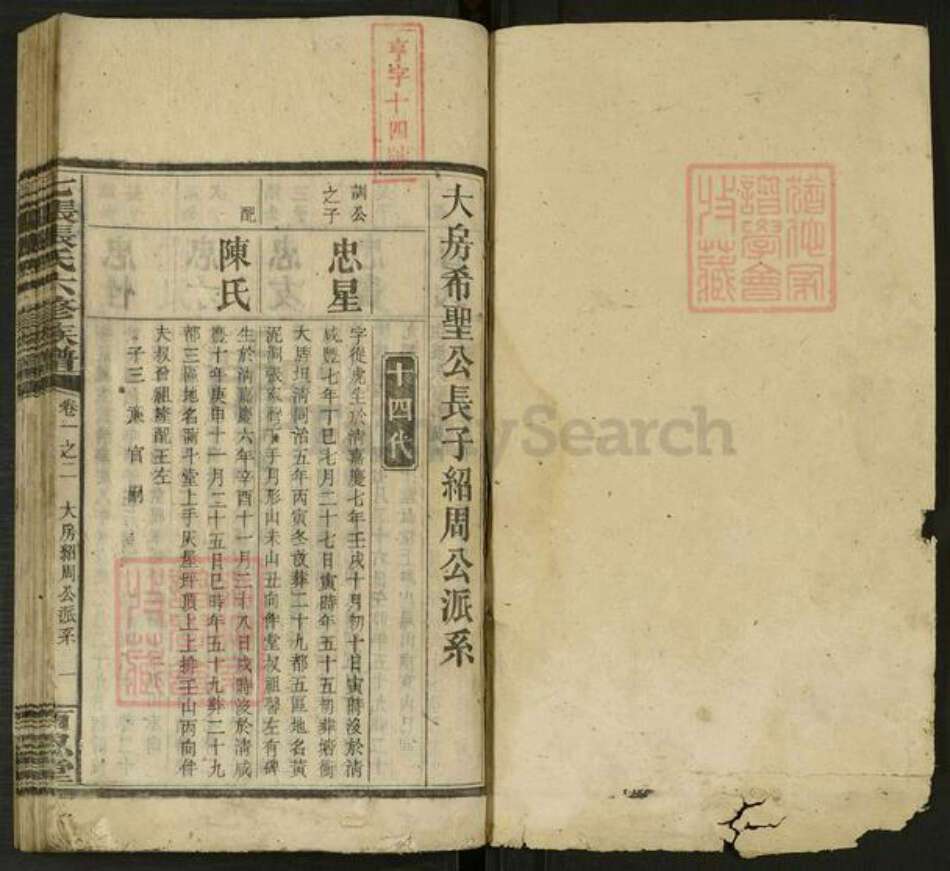 亨字十四號
大房希聖公長子紹周公派系
十四代
訓公
之子
忠星
字從虎生於清嘉慶七年壬戌十月初十日寅時沒於清
咸豐七年丁巳七月二十七日寅時年五十五初葬塘衝
大居坦清同治五年丙寅冬改葬二十九都五區地名黃
泥洞張家灣下手月形山未山丑向伴堂叔祖 左有碑
配
陳氏
生於清嘉慶六年辛酉十一月二十八日戌時沒於清咸
豐十年庚申十一月二十五日巳時年五十九葬二十九
都三區地名 斗堂上手灰屋坪頂上上排壬山丙向伴
夫叔曾祖 配王左
子三 官
張氏六修族譜
卷一之二
大房紹周公派系
一
譜學會
收藏
Search